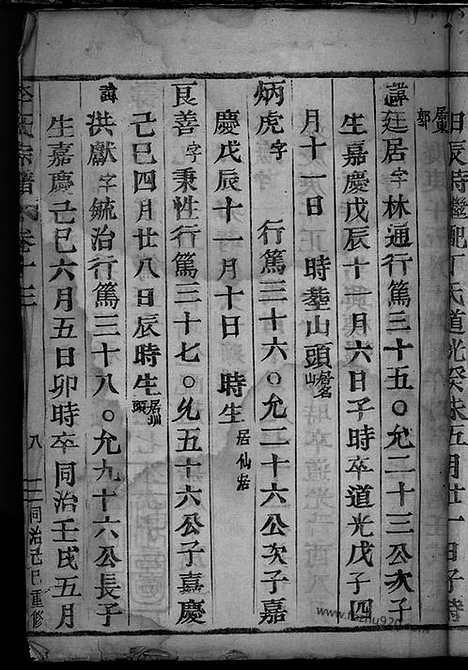 日辰時繼配丁氏道光癸未五月廿一日子時
諱廷居字林通行篤三十五〇允二十三公次子
生嘉慶戊辰十一月六日子時卒道光戊子四
月十一日 時葬山頭
炳虎字 行篤三十六〇允二十六公次子嘉
慶戊辰十一月十日 時生居仙居
良善字秉性行篤三十七〇允五十六公子嘉慶
己巳四月廿八日辰時生
諱洪獻字毓治行篤三十八〇允九十六公長子
生嘉慶己巳六月五日卯時卒同治壬戌五月
宗譜 卷十三 八 同治己巳重修